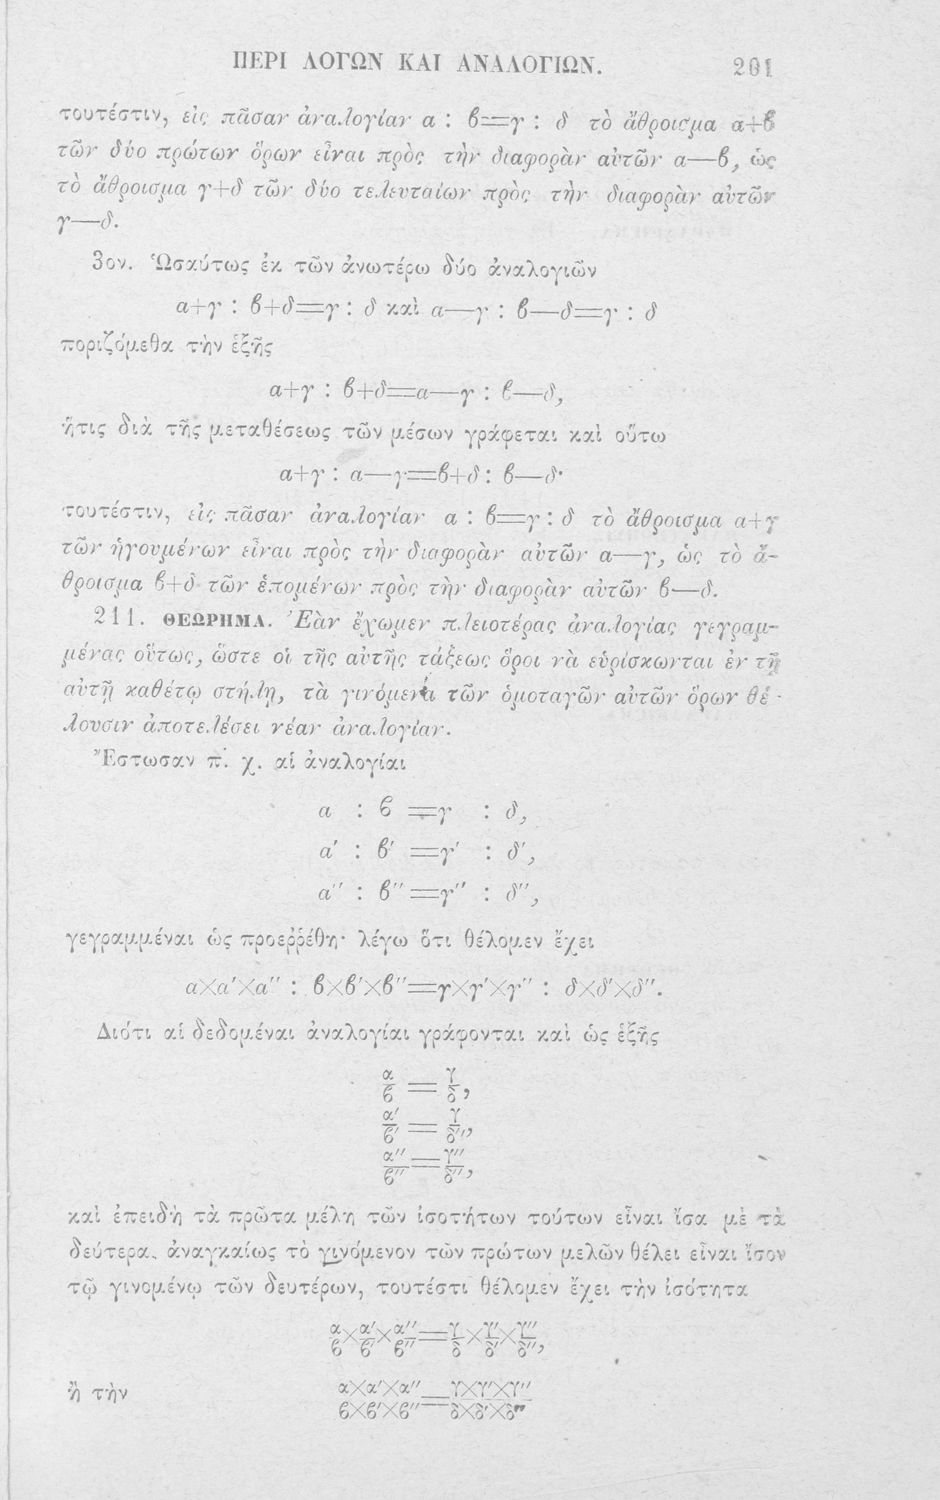 ΠΕΡΙ ΛΟΓΩΝ ΚΑΙ ΑΝΑΛΟΓΙΩΝ. 201
τουτέστιν, εἰς πᾶσαν ἀναλογίαν α : β=γ : δ τὸ ἄθροισμα α+β
τῶν δύο πρώτων ὅρων εἶναι πρὸς τὴν διαφορὰν αὐτῶν α—β, ὡς
τὸ ἄθροισμα γ+δ τῶν δύο τελευταίων πρὸς τὴν διαφορὰν αὐτῶν
γ—δ.
3ον. Ὡσαύτως ἐκ τῶν ἀνωτέρω δύο ἀναλογιῶν
α+γ : β+δ=γ : δ καὶ α—γ : β—δ=γ : δ
ποριζόμεθα τὴν ἑξῆς
α+γ : β+δ=α—γ : β—δ,
ἥτις διὰ τῆς μεταθέσεως τῶν μέσων γράφεται καὶ οὕτω
α+γ : α—γ=β+δ : β—δ·
τουτέστιν, εἰς πᾶσαν ἀναλογίαν α : β=γ : δ τὸ ἄθροισμα α+γ
τῶν ἡγουμένων εἶναι πρὸς τὴν διαφορὰν αὐτῶν α—γ, ὡς τὸ ἄ-
θροισμα β+δ τῶν ἑπομένων πρὸς τὴν διαφορὰν αὐτῶν β—δ.
211. ΘΕΩΡΗΜΑ. Ἐὰν ἔχωμεν πλειοτέρας ἀναλογίας γεγραμ-
μένας οὕτως, ὥστε οἱ τῆς αὐτῆς τάξεως ὅροι νὰ εὑρίσκωνται ἐν τῇ
αὐτῇ καθέτῳ στήλῃ, τὰ γινόμενα τῶν ὁμοταγῶν αὐτῶν ὅρων θέ-
λουσιν ἀποτελέσει νέαν ἀναλογίαν.
Ἔστωσαν π. χ. αἱ ἀναλογίαι
α : β =γ : δ,
α' : β' =γ' : δ',
α'' : β''=γ'' : δ'',
γεγραμμέναι ὡς προεῤῥέθη· λέγω ὅτι θέλομεν ἔχει
α×α'×α'' : β×β'×β''=γ×γ'×γ'' : δ×δ'×δ''.
Διότι αἱ δεδομέναι ἀναλογίαι γράφονται καὶ ὡς ἑξῆς
α/β = γ/δ,
α'/β' = γ/δ',
α''/β'' = γ''/δ'',
καὶ ἐπειδὴ τὰ πρῶτα μέλη τῶν ἰσοτήτων τούτων εἶναι ἴσα μὲ τὰ
δεύτερα, ἀναγκαίως τὸ γινόμενον τῶν πρώτων μελῶν θέλει εἶναι ἴσον
τῷ γινομένῳ τῶν δευτέρων, τουτέστι θέλομεν ἔχει τὴν ἰσότητα
α/β×α'/β'×α''/β''=γ/δ×γ'/δ'×γ''/δ'',
ἢ τὴν α×α'×α''/β×β'×β''=γ×γ'×γ''/δ×δ'×δ''